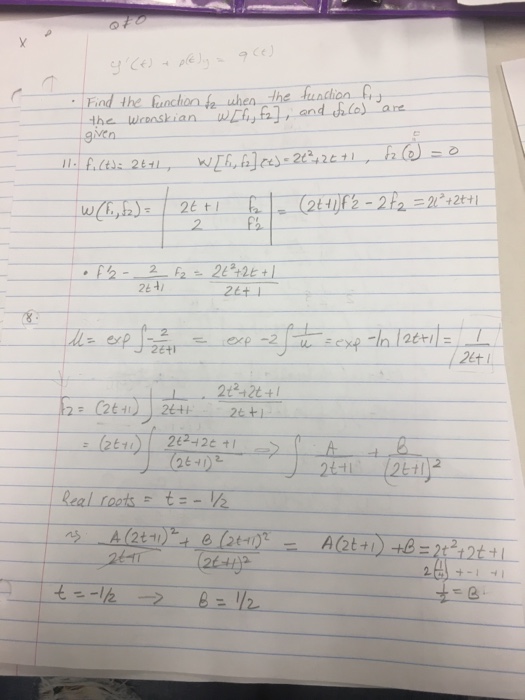 y'(t) + p(t)y = q(t)
· Find the function f₂ when the function f₁,
the wronskian W[f₁,f₂], and f₂(0) are
given
11. f₁(t) = 2t+1, W[f₁,f₂](t) = 2t²+2t+1, f₂(0) = 0
W(f₁,f₂) = | 2t+1 f₂ | = (2t+1)f'₂ - 2f₂ = 2t²+2t+1
2 f'₂
· f'₂ - 2/(2t+1) f₂ = (2t²+2t+1)/(2t+1)
8.
μ = exp ∫ -2/(2t+1) = exp -2 ∫ 1/u = exp -ln|2t+1| = | 1/(2t+1) |
f₂ = (2t+1) ∫ 1/(2t+1) · (2t²+2t+1)/(2t+1)
= (2t+1) ∫ (2t²+2t+1)/(2t+1)² → ∫ A/(2t+1) + B/(2t+1)²
Real roots = t = -1/2
⇒ A(2t+1)²/(2t+1) + B(2t+1)²/(2t+1)² = A(2t+1) + B = 2t²+2t+1
2(1/4) + -1 +1
t = -1/2 → B = 1/2 1/2 = B